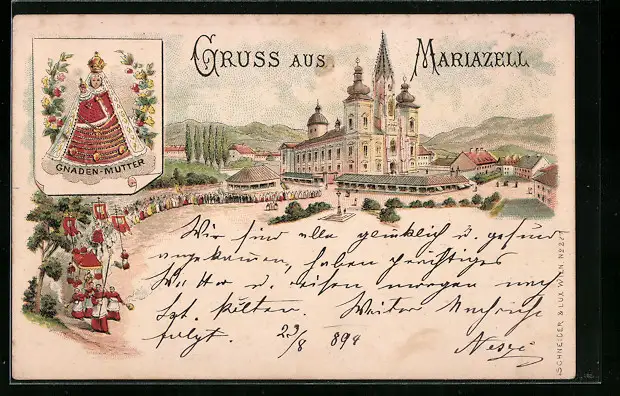 GRUSS AUS MARIAZELL
GNADEN-MUTTER
Wir sind alle glücklich u. gesund
angekommen, haben prachtiges
u. reisen morgen nach
Sgt. Pölten. Weitere Nachricht
folgt. 23/8 894
SCHNEIDER & LUX WIEN No 227